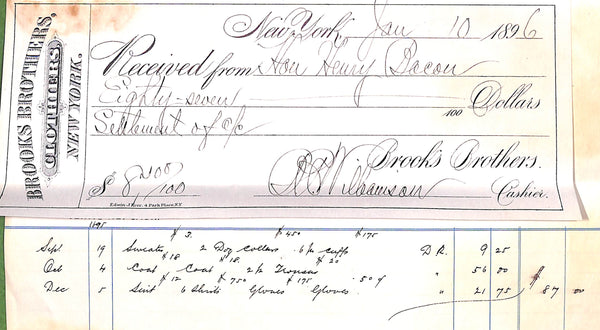 BROOKS BROTHERS,
CLOTHIERS,
NEW YORK.
New York, Jan 10 1896
Received from Hon Henry Bacon
Eighty-seven 100 Dollars
Settlement of a/c
Brook's Brothers.
$ 87 00/100 Williamson Cashier.
Park Place, N.Y.
1895 $3. $4 50 $1 75
Sept 19 Sweater 2 Doz Collars 6 pr cuffs DR. 9 25
$18 $18. $20
Oct 4 Coat Coat 2 pr Trousers " 56 00
$12 $7 50 $1 75 .50
Dec 5 Suit 6 Shirts Gloves Gloves. " 21 75 $ 87 00